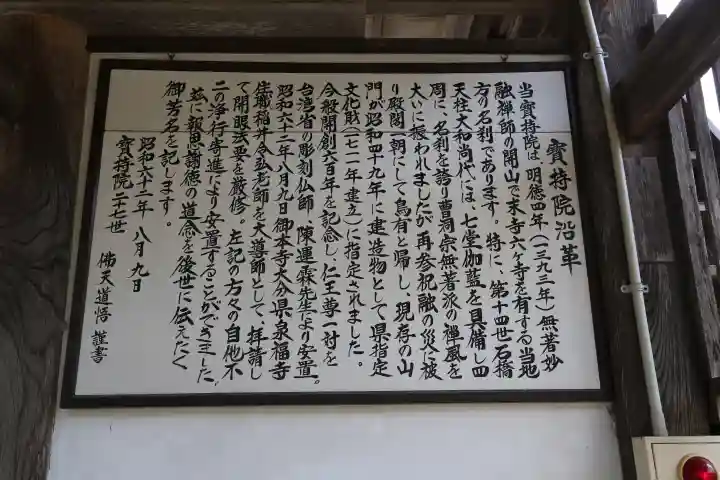 寶持院沿革
当寶持院は、明徳四年(一三九三年)無著妙
融禅師の開山で末寺六ケ寺を有する当地
方の名刹であります。特に、第十四世石橋
天柱大和尚代には、七堂伽藍を具備し四
周に、名刹を誇り曹洞宗無著派の禅風を
大いに振われましたが再参祝融の災に被
り殿閣一朝にして烏有と帰し、現存の山
門が昭和四十九年に建造物として県指定
文化財(一七一一年建立)に指定されました。
今般開創六百年を記念し、仁王尊一対を
台湾省の彫刻仏師 陳運霖先生より安置。
昭和六十二年八月九日御本寺大分県泉福寺
住職福井令弘老師を大導師として、拝請し
て開眼法要を厳修。左記の方々の自他不
二の浄行寄進により安置することができました。
茲に報恩謝徳の道念を後世に伝えたく
御芳名を記します。
昭和六十二年 八月九日
寶持院二十七世
佛天道悟 謹書